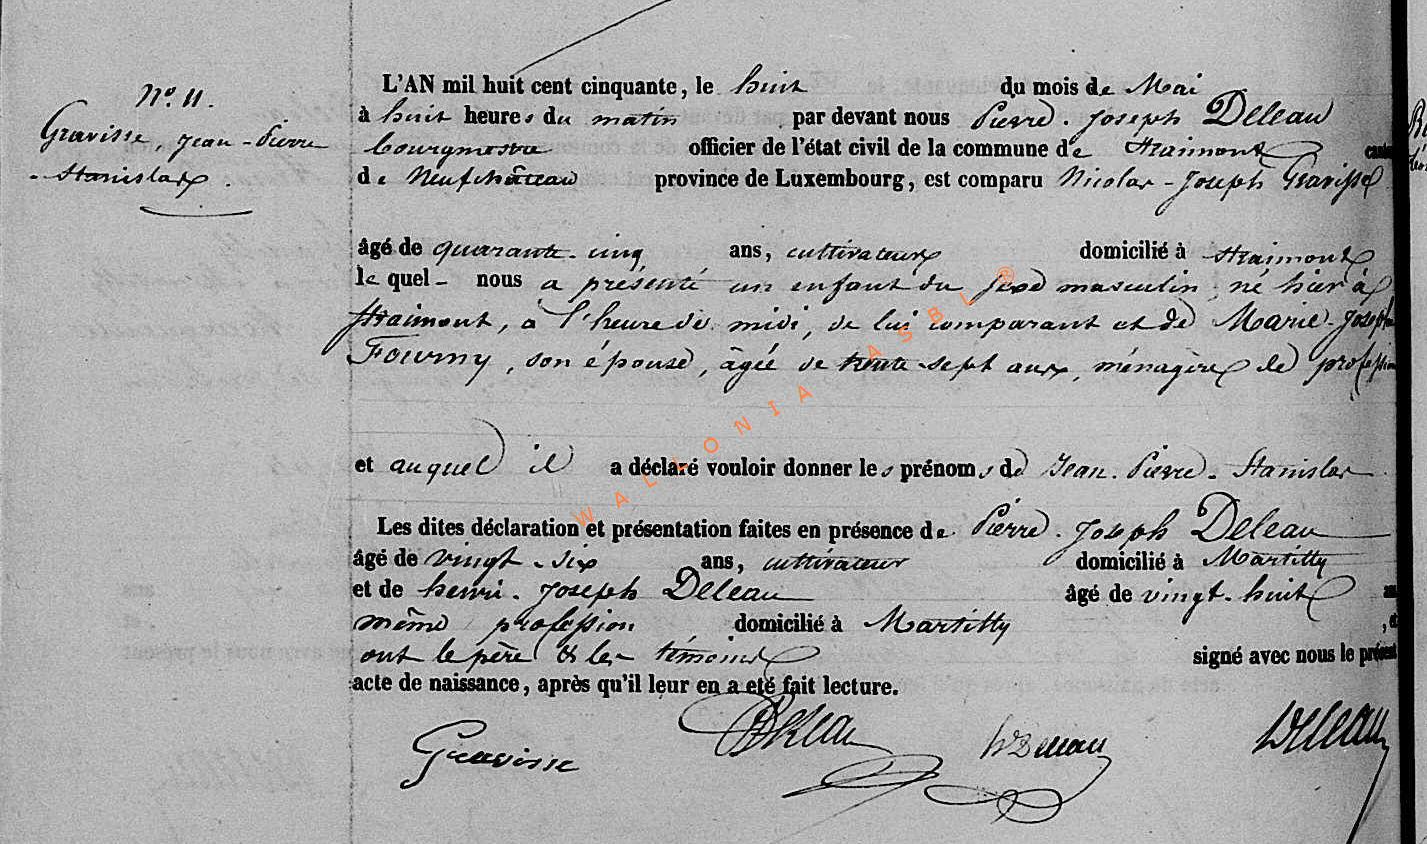 N.° 11.
Gravisse, Jean-Pierre
Stanislas.
L'AN mil huit cent cinquante, le huit du mois de Mai
à huit heures du matin par devant nous Pierre. Joseph Deleau
bourgmestre officier de l'état civil de la commune de Straimont
de Neufchâteau province de Luxembourg, est comparu Nicolas-Joseph Gravisse
âgé de quarante-cinq ans, cultivateur domicilié à Straimont
lequel nous a présenté un enfant du sexe masculin, né hier à
Straimont, à l'heure de midi, de lui comparant et de Marie-Joseph
Fourny, son épouse, âgée de trente-sept ans, ménagère de profession
et auquel il a déclaré vouloir donner les prénoms de Jean-Pierre-Stanislas
Les dites déclaration et présentation faites en présence de Pierre. Joseph Deleau
âgé de vingt-six ans, cultivateur domicilié à Martilly
et de henri-Joseph Deleau âgé de vingt-huit
même profession domicilié à Martilly
ont le père & les témoins signé avec nous le présent
acte de naissance, après qu'il leur en a eté fait lecture.
Gravisse Deleau Deleau Deleau
WALLONIA ASBL ®